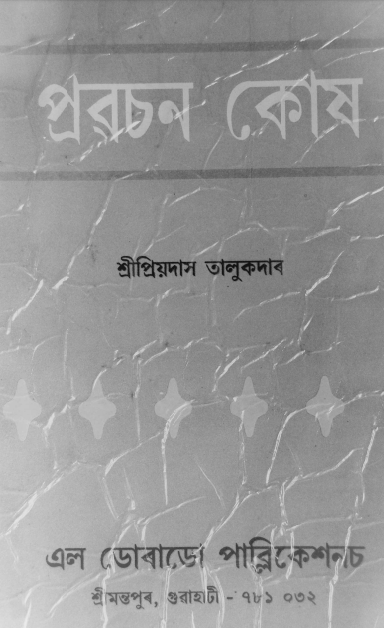 প্রৱচন কোষ
শ্ৰীপ্ৰিয়দাস তালুকদাৰ
এল ডোৰাডো পাব্লিকেশনচ
শ্ৰীমন্তপুৰ, গুৱাহাটী - ৭৮১ ০৩২